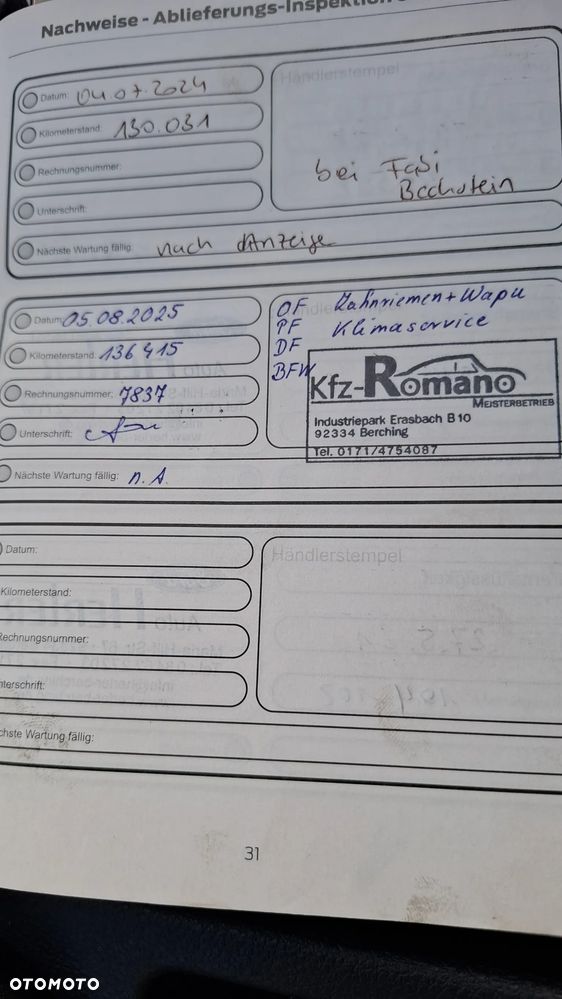 Nachweise - Ablieferungs-Inspektion
Datum: 04.07.2024
Händlerstempel
Kilometerstand: 130.031
Rechnungsnummer:
bei Fabi
Unterschrift:
Nächste Wartung fällig: nach Anzeige
Datum: 05.08.2025
OF Zahnriemen + Wapu
PF Klimaservice
DF
BFW
Kilometerstand: 136 415
Rechnungsnummer: 7837
Unterschrift:
Kfz-Romano
MEISTERBETRIEB
Industriepark Erasbach B 10
92334 Berching
Tel. 0171/4754087
Nächste Wartung fällig: n.A.
Datum:
Händlerstempel
Kilometerstand:
Rechnungsnummer:
nterschrift:
chste Wartung fällig:
31
OTOMOTO